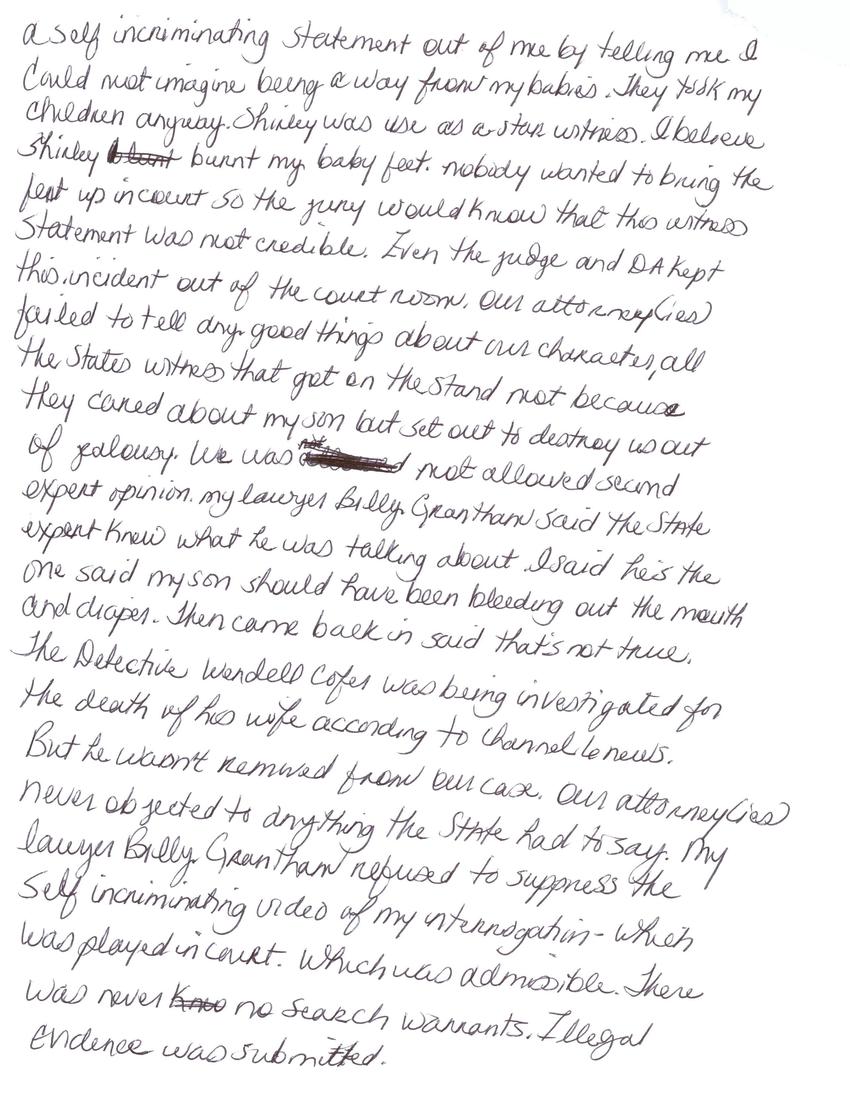 a self incriminating statement out of me by telling me I
Could not imagine being away from my babies. They took my
children anyway. Shirley was use as a star witness. I believe
Shirley burnt my baby feet. nobody wanted to bring the
feet up in court so the jury would know that this witness
Statement was not credible. Even the judge and DA Kept
this incident out of the court room. Our attorney(ies)
failed to tell any good things about our character, all
the States witness that got on the stand not because
they cared about my son but set out to destroy us out
of jealousy. We was not not allowed second
expert opinion. my lawyer Billy Grantham said the State
expert knew what he was talking about. I said he's the
one said my son should have been bleeding out the mouth
and diaper. Then came back in said that's not true.
The Detective Wendell Cofer was being investigated for
the death of his wife according to Channel 6 news.
But he wasn't removed from our case. Our attorney(ies)
never objected to anything the State had to say. My
lawyer Billy Grantham refused to suppress the
Self incriminating video of my interrogation - which
was played in court. Which was admissible. There
was never no search warrants. Illegal
Evidence was submitted.